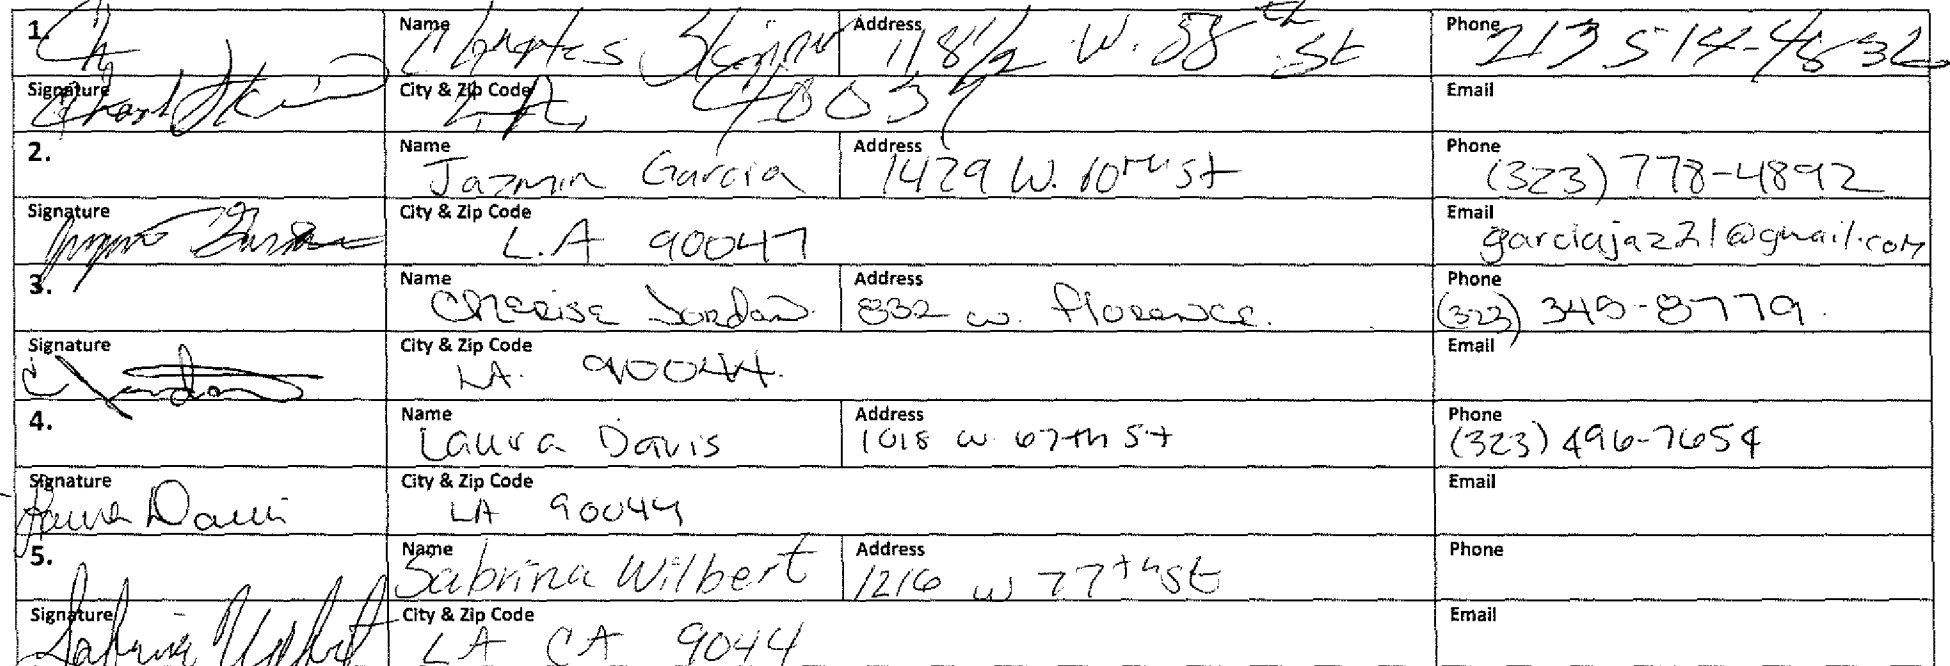 1. Name Charles Skinner Address 118 1/2 W. 88th St Phone 213 514-4832
Signature City & Zip Code L.A. 9003 Email
2. Name Jazmin Garcia Address 1429 W. 10TH St Phone (323) 778-4892
Signature City & Zip Code L.A 90047 Email garciajazz1@gmail.com
3. Name Cherise Jordan Address 832 w. florence. Phone (323) 345-8779.
Signature C Jordan City & Zip Code LA. 90044. Email
4. Name Laura Davis Address 1018 w. 67th St Phone (323) 496-7654
Signature Laura Davis City & Zip Code LA 90044 Email
5. Name Sabrina Wilbert Address 1216 w 77th St Phone
Signature Sabrina Wilbert City & Zip Code LA CA 9044 Email